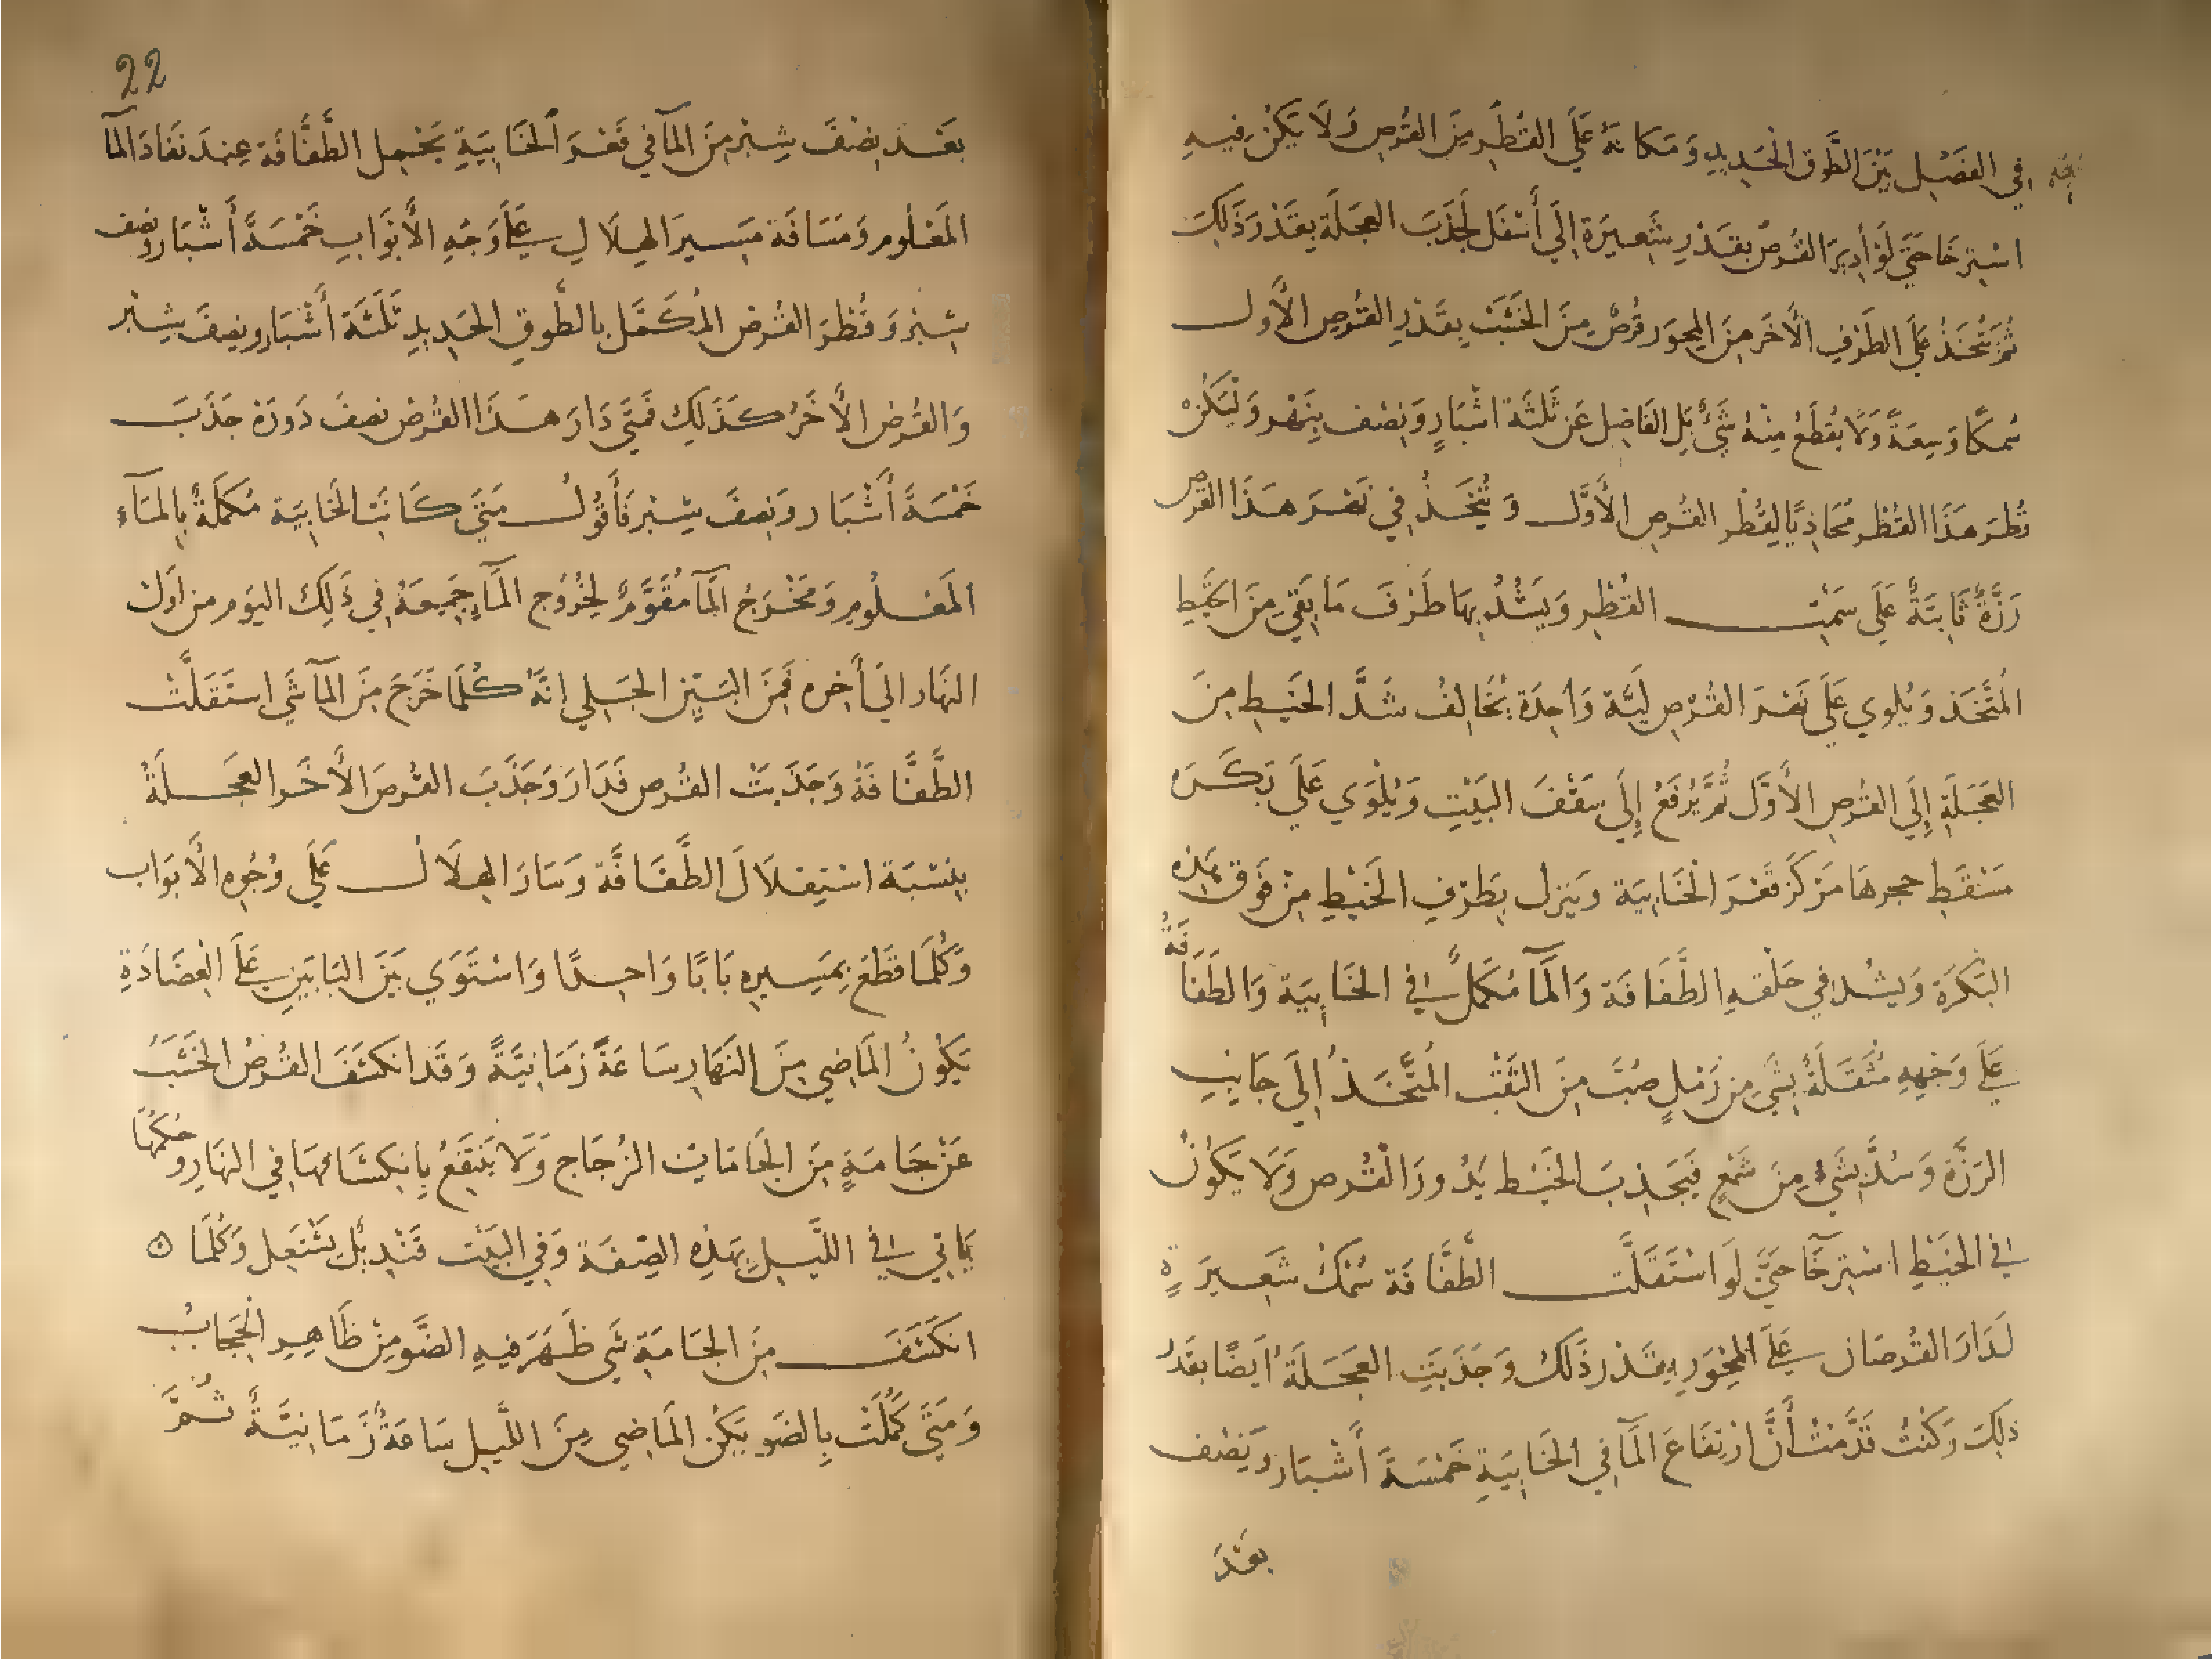 في الفَصْل بَيْنَ الطَّوق الحَدِيدِ وَمَكانهُ عَلَى القُطْرِ مِنَ القُرْصِ وَلَا يَكُنْ فِيهِ
اسْتِرخَا حَتَّى لَوْ أُدِيرَ القُرصُ بِقَدْرِ شَعِيرَة إِلَى أَسْفَل لَجَذَبَ العَجَلَة بِقَدْرِ ذَلِكَ
ثُمَّ يُتَّخَذُ عَلَى الطَرْفِ الأَخَر مِنَ المِحوَر قُرْصٌ مِنَ الخَشَبْ بِقَدْرِ القُرصِ الأَوَل
سُمكًا وَسِعَةً وَلَا يُقْطَعُ مِنْهُ شَئٌ بَلِ الفَاضِل عَن ثَلثَة اشْبَارٍ وَنِصْف وَلْيَكُنْ
قُطرَ هَذَا القُطْر مُحَاذِيًا لِقُطْر القُرصِ الأَوَّل وَيُتَّخَذُ فِي قَعْرَ هَذَا القُرص
رَزَّةٌ ثَابِتَةٌ عَلَى سَمْتِ القُطْرِ وَيُشَدُّ بِهَا طَرْفَ مَا بَقِيَ مِنَ الخَيْطِ
المُتَّخَذ وَيُلوي عَلَى قَعْرَ القُرْص لَيَّة وَاحِدَة يُخَالِفُ شَدَّ الخَيْطِ مِنَ
العَجَلَةِ إِلَى القُرصِ الأَوَّل ثُمَّ يُرْفَعُ إِلَى سَقْفَ البَيْتِ وَيُلْوَي عَلَى بَكَرَه
مَسْقَط حجرهَا مَرْكَز قَعْرَ الخَابِيَة وَيَنزل بِطَرْفِ الخَيْطِ مِنْ فَوْق هَذِهِ
البَكرَة وَيُشدُ فِي حَلْقه الطَّفَافَة وَالمَآ مُكَمَلٌ فِي الخَابِيَة وَالطَفَّافَةُ
عَلَى وَجْهِهِ مُثَقَّلَةٌ بِشَئٍ مِن رَمْلٍ صُبَّ مِنَ الثَقْبْ المُتَّخَذُ إِلَى جَانِبِ
الرَزَّة وَسُدَّ بِشَئٍ مِنَ شَمْعٍ فَيَجذِبَ الخَيْط بَدُورَ القُرص وَلَا يَكُونُ
فِي الخَيْطِ اسْتِرخَآ حَتَّى لَوِ اسْتَقَلَّت الطَّفَّافَة سُمْكْ شَعِيرَةٍ
لَدَارَ القُرصَان عَلَى المِحْوَرِ بِقَدْر ذَلِكَ وَجَذَبَتِ العَجَلَةُ أَيضًا بِقَدْر
ذلِكَ وَكُنْتُ قَدَّمْتُ أَنَّ ارْتِفَاعَ المَآ فِي الخَابِيَةِ خَمْسَةَ أَشْبَار وَنِصْف
بعْدَ
22
بَعْد نِصْفَ شِبْرٍ مِنَ المَآ فِي قَعْرَ الخَابِيَةِ يَحْمِل الطَّفَّافَة عِندَ نَفَادَ المَآ
المَعْلُوم وَمَسَافَة مَسِيرَ الهِلَالِ عَلَى وَجْهِ الأَبْوَابِ خَمْسَةَ أَشْبَار وَنِصْف
شِبْر وَقُطْرَ القُرصْ المُكَمَّل بِالطَّوقِ الحَدِيدِ ثَلَثَة أَشْبَار وَنِصفَ شِبْر
وَالقُرصْ الأَخَرُ كَذَلِكَ فَمَتَى دَارَ هَذَا القُرْصْ نصفَ دَورَة جَذَبَ
خَمْسَةَ أَشْبَار وَنِصفَ شِبْر فَأَقُولُ مَتَى كَانَتِ الخَابِيَة مُكَمَلَةٌ بِالمَآءِ
المَعْلُومِ وَمَخْرَجُ المَآ مُقَوَّمٌ لِخُرُوجِ المَآءِ جَمِيعَهُ فِي ذَلِكَ اليَوم من اَوَلْ
النَهَار الى أخِره فَمِنَ البَيِّن الجَلي انَّهُ كُلَمَا خَرَجَ مِنَ المَآ شَي اسْتَقَلَّتْ
الطَّفَّافَةُ وَجَذَبتْ القُرص فَدَارَ وَجَذَبَ القُرصَ الأَخَر العَجَلَةُ
بِنِسْبَة اسْتِقلَالَ الطَّفَافَّة وَسَارَ الهِلَال عَلَى وُجُوهِ الأَبوَاب
وَكُلَمَا قَطَعَ بِمَسِيرِه بَابًا وَاحِدًا وَاسْتَوَي بَيْنَ البَابَيْن عَلَى العِضَادَةِ
يَكُونُ المَاضِي مِنَ النَهَارِ سَاعَةً زَمَانِيَّةً وَقَد انكَشَفَ القُرصُ الخَشَبُ
عَنْ جَامَةٍ مِنَ الجَامَاتْ الزُجَاج وَلَا يُنتَفَعُ بِانكِشَافِهَا فِي النَهَار وَحُكمُهَا
يَاتِي فِي اللَّيلِ بِهَذِهِ الصِفَة وَفِي البَيْت قَنْدِيْلٌ يَشْتَعِل وَكُلَمَا ه
انكَشَفَ مِنَ الجَامَةِ شَي ظَهَرَ فِيهِ الضَّو مِنْ ظَاهِرِ الحِجَابُ
وَمَتَى كَمُلَتْ بِالضَو يَكُن المَاضِي مِنَ اللَّيل سَاعَةً زَمَانِيَّةً ثُمَّ